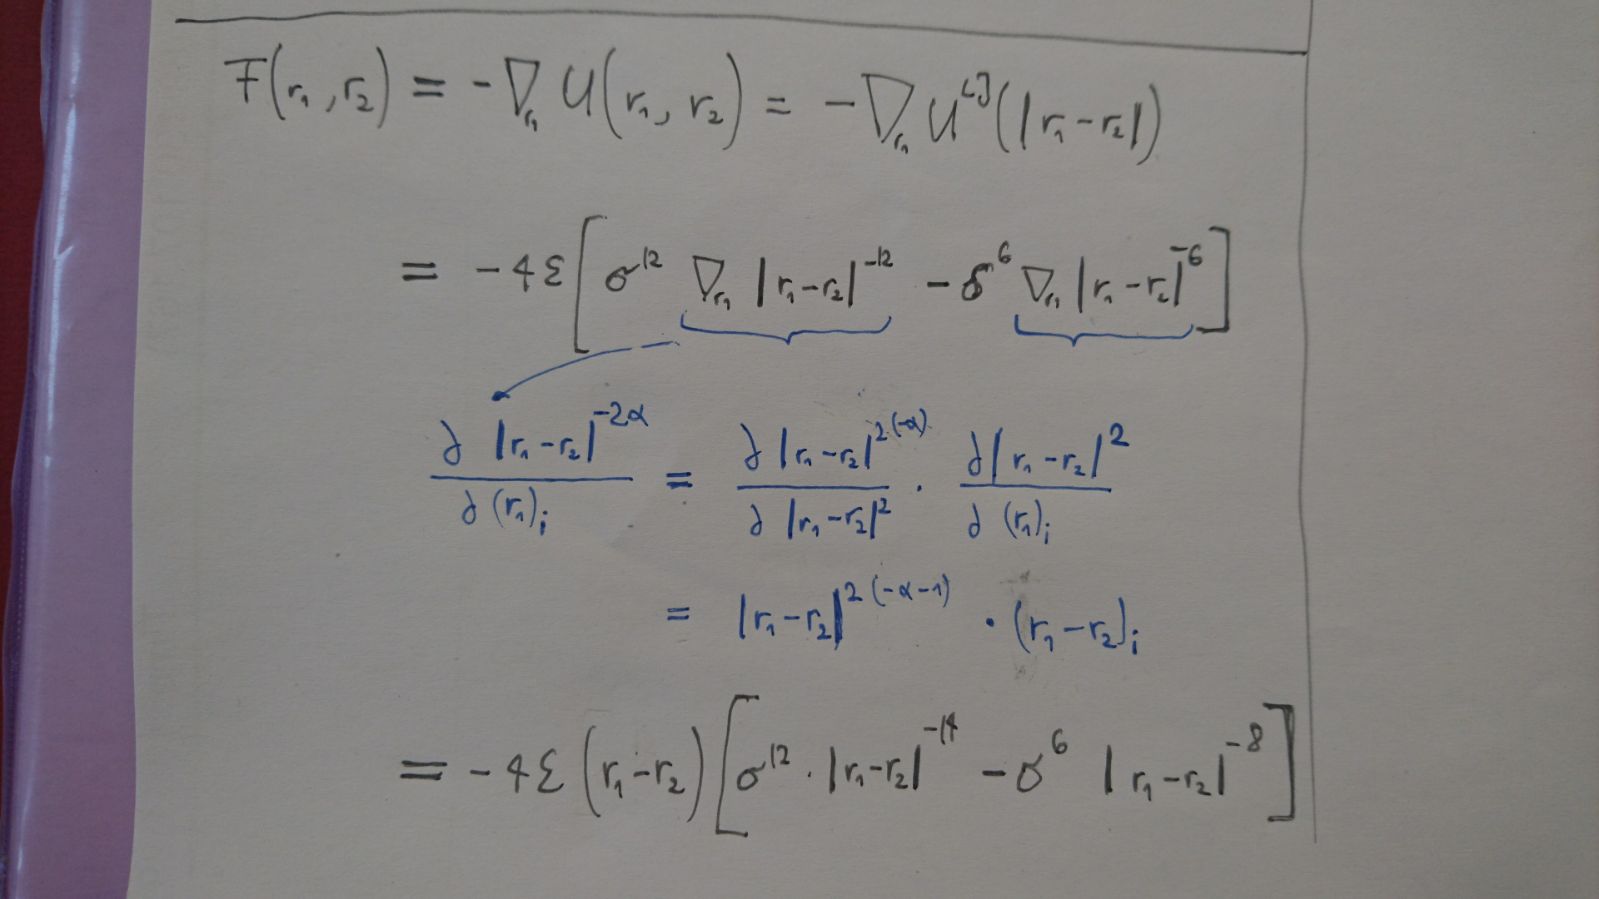 F(r₁, r₂) = -∇_{r₁} U(r₁, r₂) = -∇_{r₁} U^{LJ}(|r₁-r₂|)
= -4ε[σ^{12} ∇_{r₁} |r₁-r₂|^{-12} - σ^6 ∇_{r₁} |r₁-r₂|^{-6}]
∂|r₁-r₂|^{-2α} / ∂(r₁)_i = ∂|r₁-r₂|^{2(-α)} / ∂|r₁-r₂|^2 · ∂|r₁-r₂|^2 / ∂(r₁)_i
= |r₁-r₂|^{2(-α-1)} · (r₁-r₂)_i
= -4ε(r₁-r₂)[σ^{12} · |r₁-r₂|^{-14} - σ^6 |r₁-r₂|^{-8}]